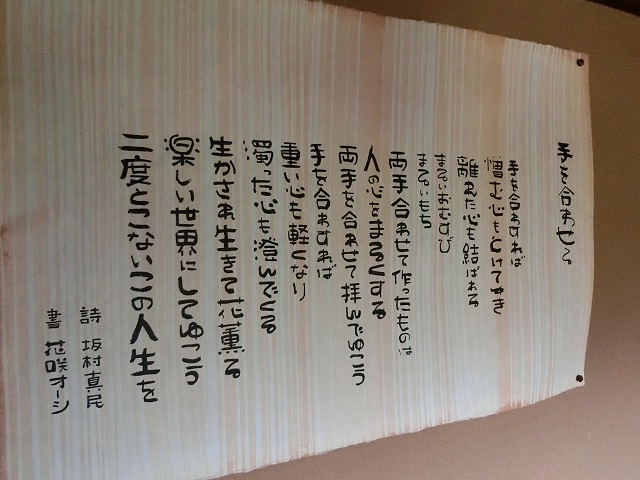 手を合わせる
手を合わすれば
憎む心もとけてゆき
離れた心も結ばれる
まるいおむすび
まるいもち
両手合わせて作ったものは
人の心をまるくする
両手を合わせて拝んでゆこう
手を合わすれば
重い心も軽くなり
濁った心も澄んでくる
生かされ生きて花薫る
楽しい世界にしてゆこう
二度とこないこの人生を
詩 坂村真民
書 花咲オーシ